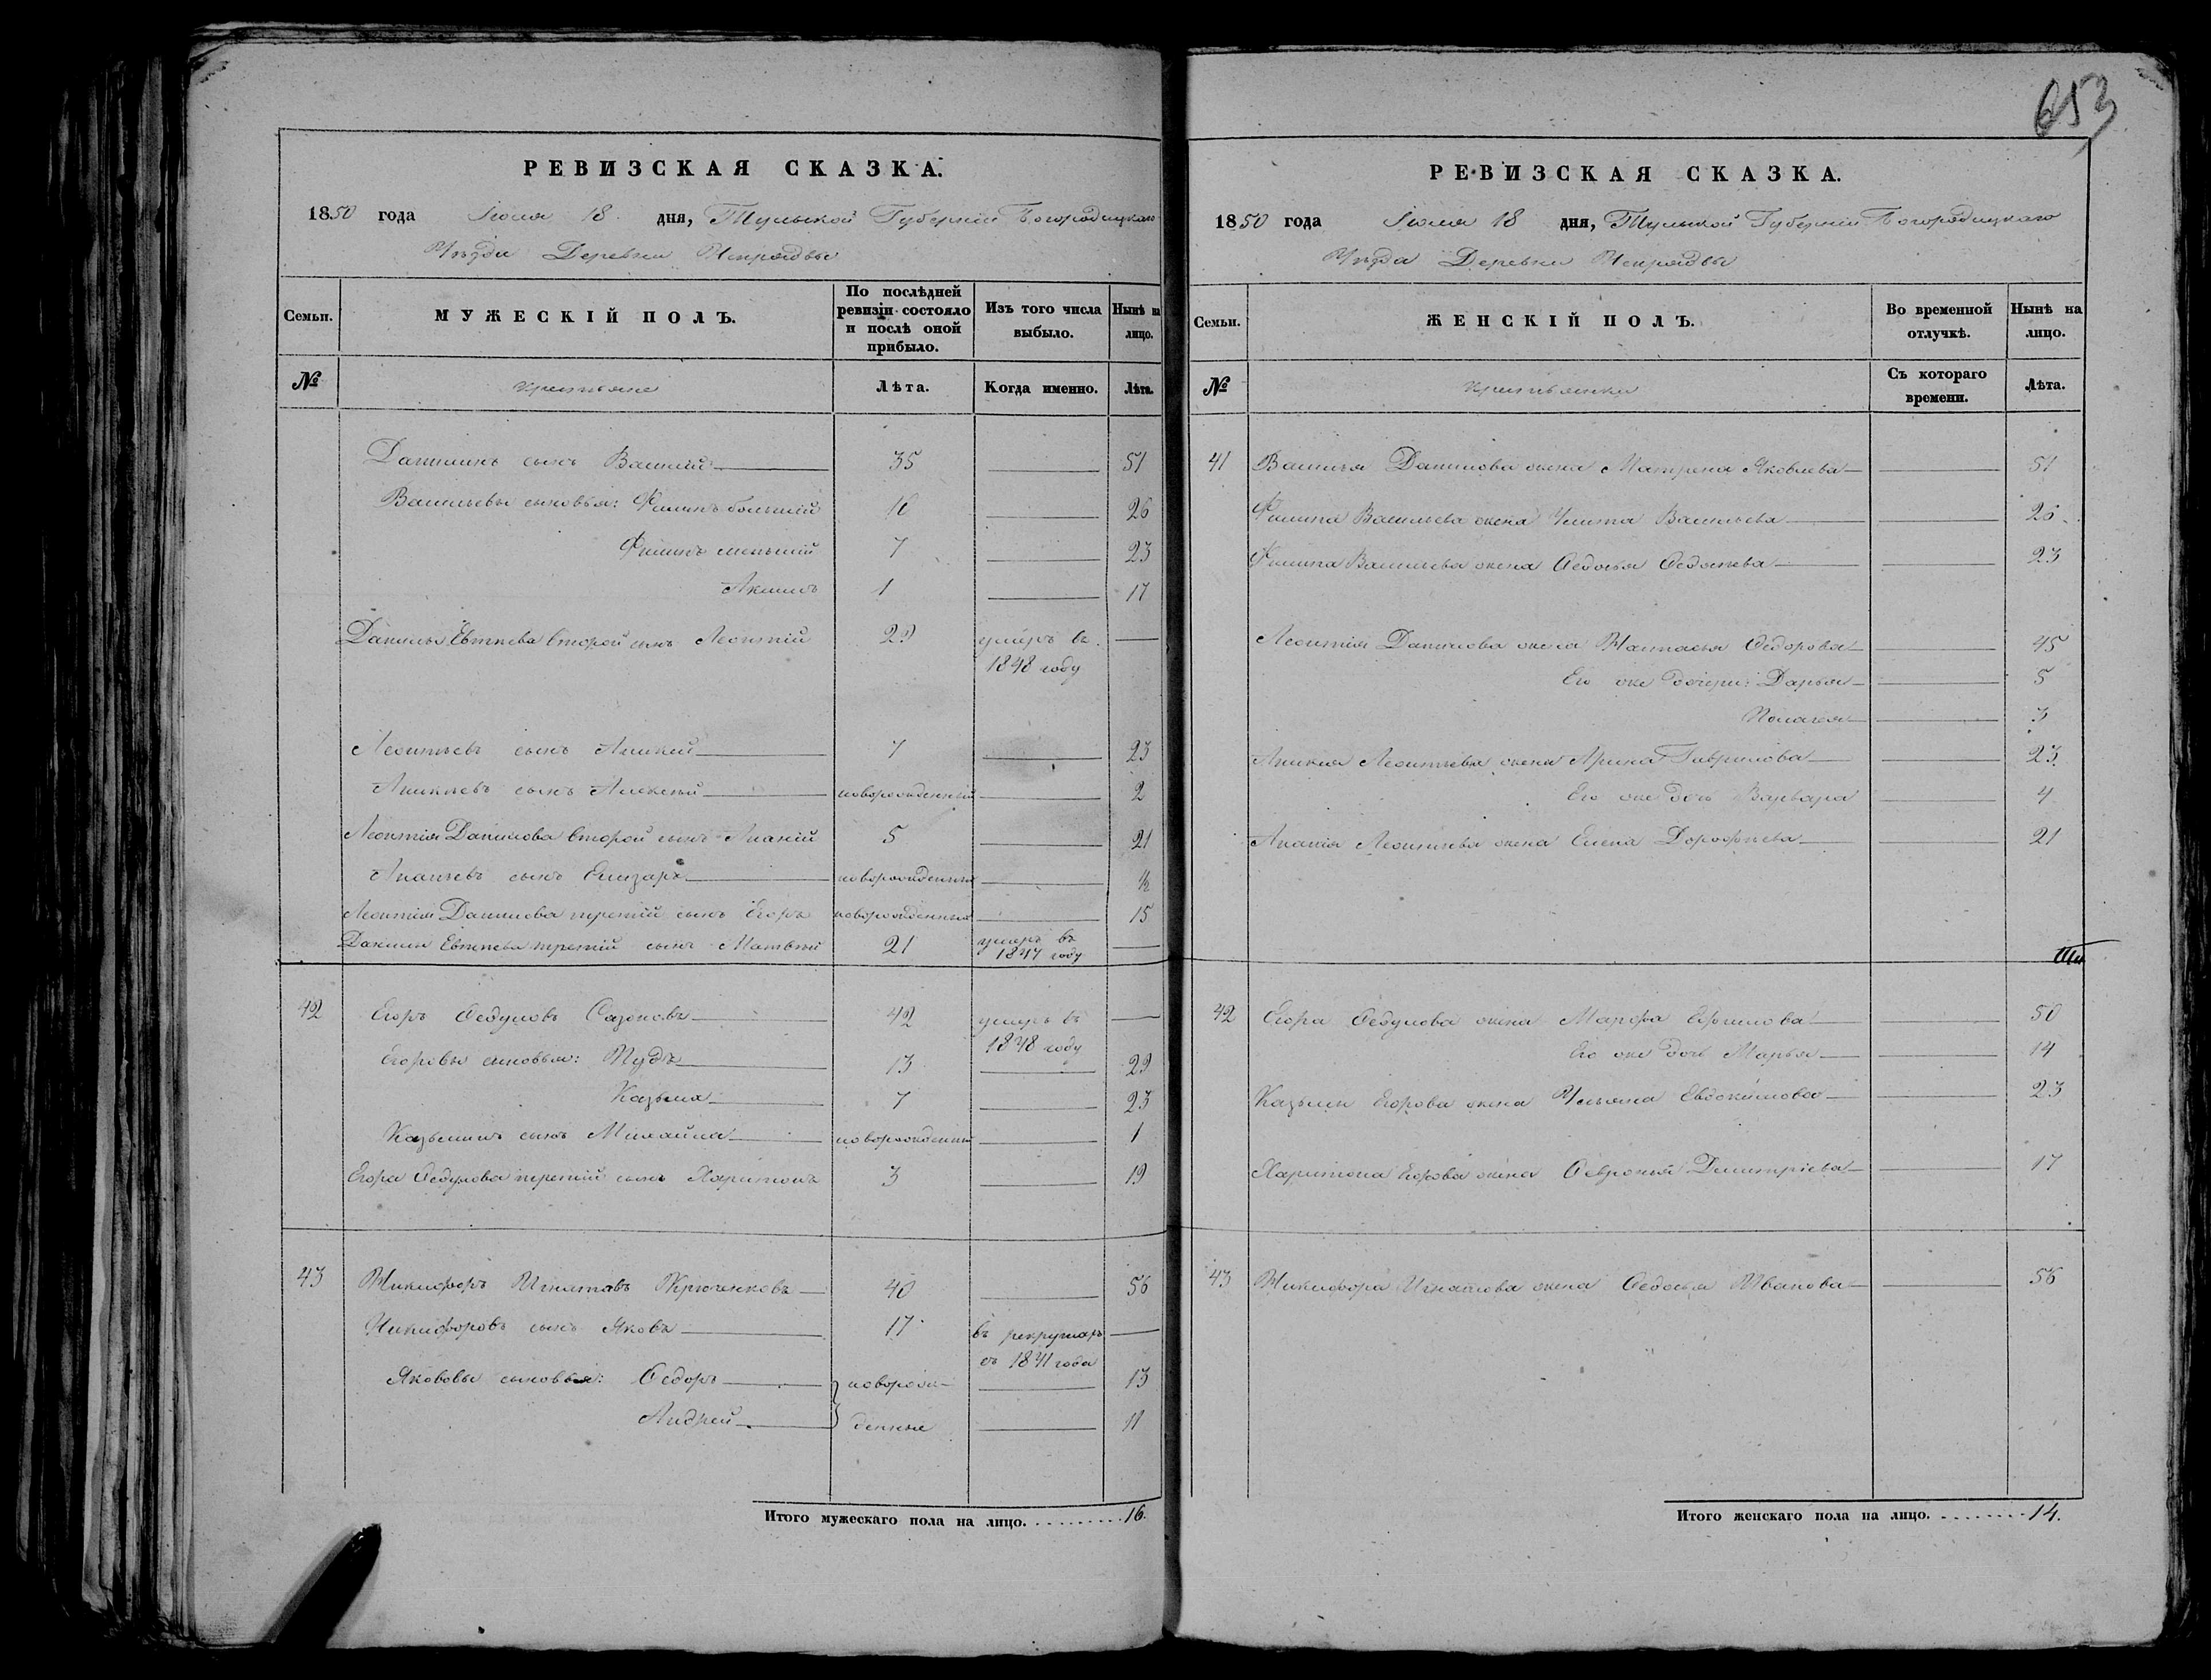 653
РЕВИЗСКАЯ СКАЗКА.
1850 года Іюля 18 дня, Тульской Губерніи Богородицкаго
Уѣзда Деревни Непрядвы
Семьи. МУЖЕСКІЙ ПОЛЪ. По послѣдней ревизіи состояло и послѣ оной прибыло. Изъ того числа выбыло. Нынѣ на лицо.
№ Крестьяне Лѣта. Когда именно. Лѣта.
Даниинъ сынъ Василій 35 51
Васильевы сыновья: Филипъ большій 10 26
Филипъ меньшій 7 23
Акимъ 1 17
Данилы Евтѣева второй сынъ Леонтій 29 умеръ въ
1848 году
Леонтьевъ сынъ Аникей 7 23
Аникѣевъ сынъ Алексѣй новорожденный 2
Леонтія Данилова второй сынъ Ананій 5 21
Ананьевъ сынъ Елизаръ новорожденный ½
Леонтія Данилова третій сынъ Егоръ новорожденный 15
Данилы Евтѣева третій сынъ Матвѣй 21 умеръ въ
1847 году
42 Егоръ Федуловъ Сазоновъ 42 умеръ въ
1848 году
Егоровы сыновья: Тудъ 13 29
Казьма 7 23
Казьминъ сынъ Михайла новорожденный 1
Егора Федулова третій сынъ Харитонъ 3 19
43 Никифоръ Игнатовъ Крюченковъ 40 56
Никифоровъ сынъ Яковъ 17 въ рекрутахъ
съ 1841 года
Яковы сыновья: Федоръ новорож- 13
Андрей денные 11
Итого мужескаго пола на лицо. 16.
РЕВИЗСКАЯ СКАЗКА.
1850 года Іюля 18 дня, Тульской Губерніи Богородицкаго
Уѣзда Деревни Непрядвы
Семьи. ЖЕНСКІЙ ПОЛЪ. Во временной отлучкѣ. Нынѣ на лицо.
№ Крестьянки Съ котораго времени. Лѣта.
41 Василья Данилова жена Матрена Яковлева 51
Филипа Васильева жена Улита Васильева 26
Филипа Васильева жена Федосья Федотьева 23
Леонтія Данилова жена Настасья Федорова 45
Его же дочери: Дарья 5
Пелагея 3
Аникея Леонтьева жена Арина Гаврилова 23
Его же дочь Варвара 4
Ананія Леонтьева жена Елена Дорофѣева 21
42 Егора Федулова жена Марфа Ефимова 50
Его же дочь Марья 14
Казьмы Егорова жена Ульяна Евдокимова 23
Харитона Егорова жена Февронья Димитріева 17
43 Никифора Игнатова жена Федосья Иванова 56
Итого женскаго пола на лицо. 14.